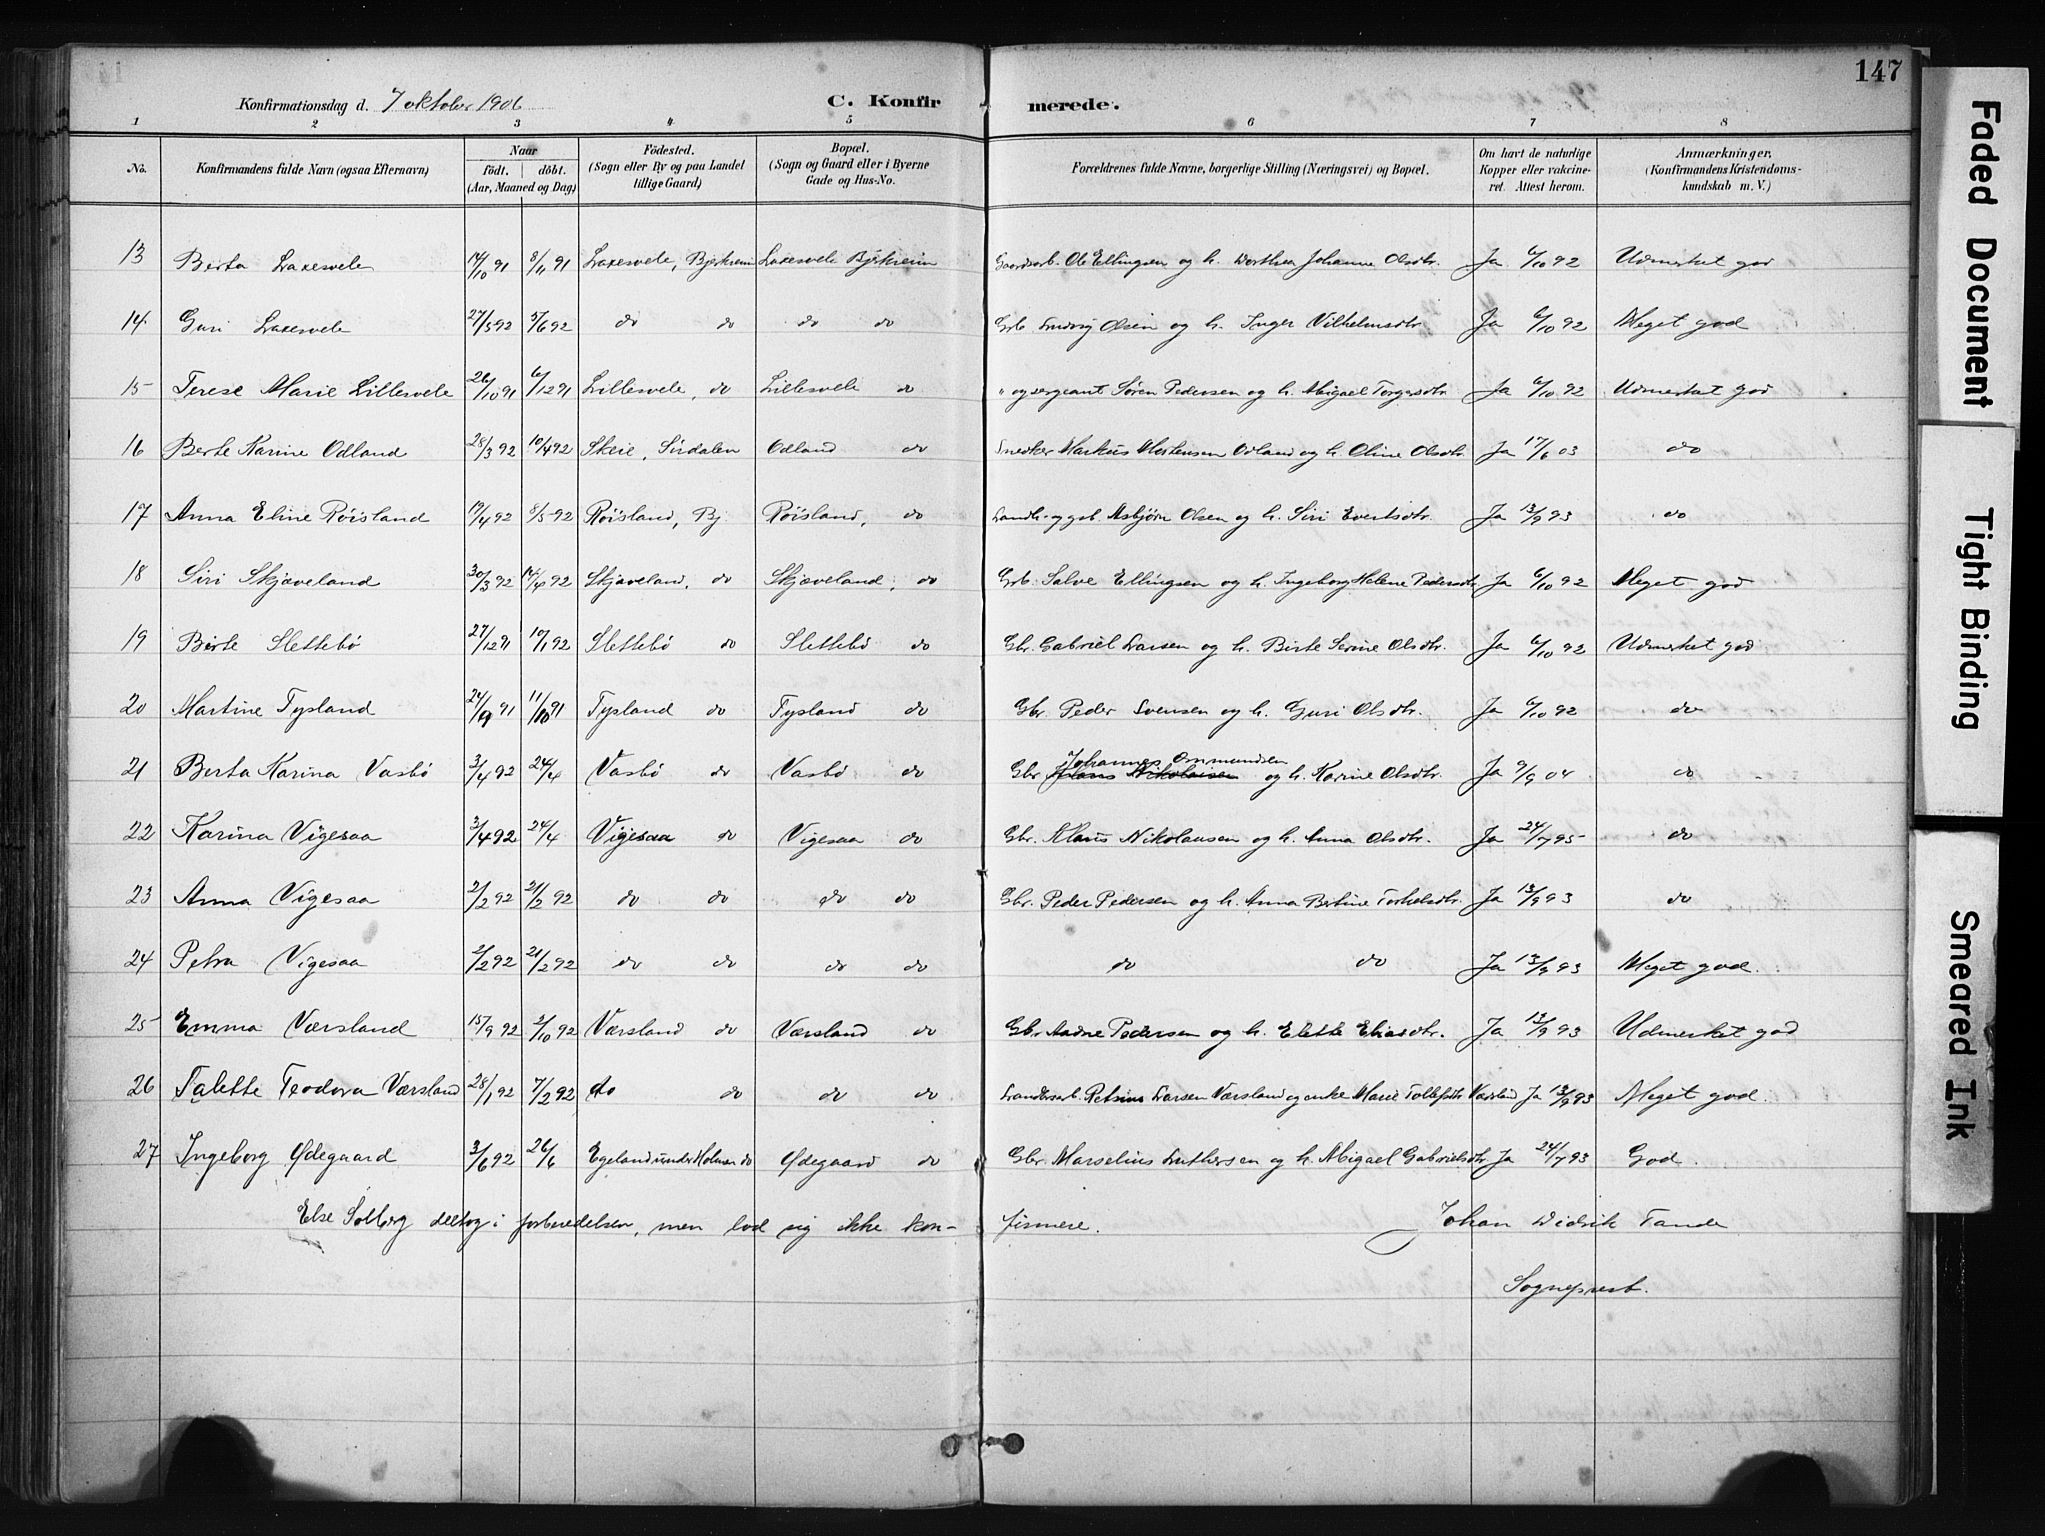 147
Konfirmationsdag d. 7 oktober 1906 C. Konfirmerede.
1 2 3 4 5 6 7 8
No. Konfirmandens fulde Navn (ogsaa Efternavn) Naar födt. döbt. (Aar, Maaned og Dag) Födested. (Sogn eller By og paa Landet tillige Gaard) Bopæl. (Sogn og Gaard eller i Byerne Gade og Hus-No. Forældrenes fulde Navne, borgerlige Stilling (Næringsvei) og Bopæl. Om havt de naturlige Kopper eller vakcineret. Attest herom. Anmærkninger, (Konfirmandens Kristendomskundskab m. V.)
13 Berta Laxesvele 14/10 91 8/11 91 Laxesvele, Bjerkreim Laxesvele Bjerkreim Gaardarb. Ole Ellingsen og h. Dorthea Johanne Olsdtr. Ja 6/10 92 Udmerket god
14. Guri Laxesvele 27/5 92 5/6 92 do do do do Grb Ludvig Olsen og h. Inger Vilhelmsdtr Ja 6/10 92 Meget god
15 Terese Marie Lillesvele 26/10 91 6/12 91 Lillesvele, do Lillesvele do " og sergeant Søren Pedersen og h. Abigael Torgersdtr Ja 6/10 92 Udmerket god
16 Berte Karine Odland 28/3 92 10/4 92 Skeie, Sirdalen Odland do Snedker Markus Mortensen Odland og h. Oline Olsdtr. Ja 17/6 03 do
17 Anna Eline Röisland 19/4 92 8/5 92 Röisland, Bj Röisland, do Landh- og gsb. Asbjørn Olsen og h. Siri Evertsdtr. Ja 13/9 93 do
18 Siri Skjæveland 30/3 92 14/4 92 Skjæveland, do Skjæveland, do Grb. Salve Ellingsen og h. Ingeborg Helene Pedersdtr Ja 6/10 92 Meget god
19 Berte Slettebö 27/12 91 10/1 92 Slettebö do Slettebö do Gbr. Gabriel Larsen og h. Birte Serine Olsdtr. Ja 6/10 92 Udmerket god
20 Martine Tysland 24/9 91 11/10 91 Tysland do Tysland do Gbr. Peder Svensen og h. Guri Olsdtr. Ja 6/10 92 do
21 Berta Karina Vasbö 3/4 92 24/4 Vasbö do Vasbö do Gbr Klaus Nikolaisen Johannes Ommundsen og h. Karine Olsdtr. Ja 9/9 04 do
22 Karina Vigesaa 3/4 92 24/4 Vigesaa do Vigesaa do Gbr. Klaus Nikolausen og h. Anna Olsdtr. Ja 24/7 95 do
23 Anna Vigesaa 2/2 92 21/2 92 do do do do Gbr. Peder Pedersen og h. Anna Bertine Torkelsdtr. Ja 13/9 93 do
24 Petra Vigesaa 2/2 92 21/2 92 do do do do do do Ja 13/9 93 Meget god.
25 Emma Værsland 15/9 92 2/10 92 Værsland do Værsland do Gbr Aadne Pedersen og h. Elette Eliasdtr. Ja 13/9 93 Udmerket god
26 Talette Teodora Værsland 28/1 92 7/2 92 do do do do Landarb. Larsen Værsland og enke Marie Tollefsdtr Værsland Ja 13/9 93 Meget god.
27 Ingeborg Ødegaard 3/6 92 26/6 Egeland under Holmen do Ødegaard do Gbr. Marselius Luthersen og h. Abigael Gabrielsdtr Ja 24/7 93 God.
Else Solberg deltog i forberedelsen, men lod sig ikke konfirmere. Johan Didrik Tande
Sogneprest.
Faded Document
Tight Binding
Smeared Ink